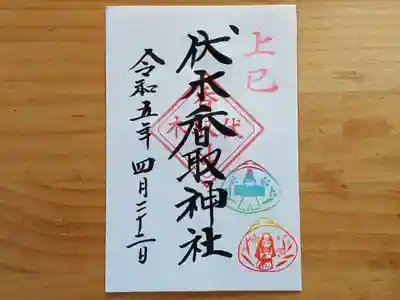 上巳
伏木香取神社
令和五年 四月二十二日